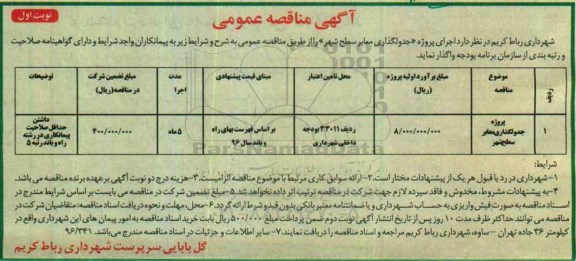 نوبت اول
آگهی مناقصه عمومی
شهرداری رباط کریم در نظر دارد اجرای پروژه «جدولگذاری معابر سطح شهر» را از طریق مناقصه عمومی به شرح و شرایط زیر به پیمانکاران واجد شرایط و دارای گواهینامه صلاحیت
و رتبه بندی از سازمان برنامه بودجه واگذار نماید.
ردیف
موضوع مناقصه
مبلغ برآورد اولیه پروژه (ریال)
محل تامین اعتبار
مبنای قیمت پیشنهادی
مدت اجرا
مبلغ تضمین شرکت در مناقصه (ریال)
توضیحات
۱
پروژه جدولگذاری معابر سطح شهر
۸/۰۰۰/۰۰۰/۰۰۰
ردیف ۳۳۰۱۱ بودجه داخلی شهرداری
بر اساس فهرست بهای راه و باند سال ۹۶
۵ ماه
۴۰۰/۰۰۰/۰۰۰
داشتن حداقل صلاحیت پیمانکاری در رشته راه و باند رتبه ۵
شرایط:
۱- شهرداری در رد یا قبول هر یک از پیشنهادات مختار است. ۲- ارائه سوابق کاری مرتبط با موضوع مناقصه الزامیست. ۳- هزینه درج دو نوبت آگهی بر عهده برنده مناقصه می باشد.
۴- به پیشنهادات مشروط، مخدوش و فاقد سپرده لازم جهت شرکت در مناقصه ترتیب اثر داده نخواهد شد. ۵- مبلغ تضمین شرکت در مناقصه می بایست بر اساس شرایط مندرج در
اسناد مناقصه به صورت فیش واریزی به حساب شهرداری و یا ضمانتنامه معتبر بانکی بدون قید و شرط ارائه گردد. ۶- محل، مهلت و نحوه دریافت اسناد مناقصه: متقاضیان شرکت در
مناقصه می توانند حداکثر ظرف مدت ۱۰ روز پس از تاریخ انتشار آگهی نوبت دوم ضمن پرداخت مبلغ ۵۰۰/۰۰۰ ریال بابت خرید اسناد مناقصه به امور پیمان های این شهرداری واقع در
کیلومتر ۳۶ جاده تهران – ساوه، شهرداری رباط کریم مراجعه و اسناد مناقصه را دریافت نمایند. ۷- سایر اطلاعات و جزئیات در اسناد مناقصه مندرج می باشد. ۹۶/۳۴۱
گل بابایی سرپرست شهرداری رباط کریم